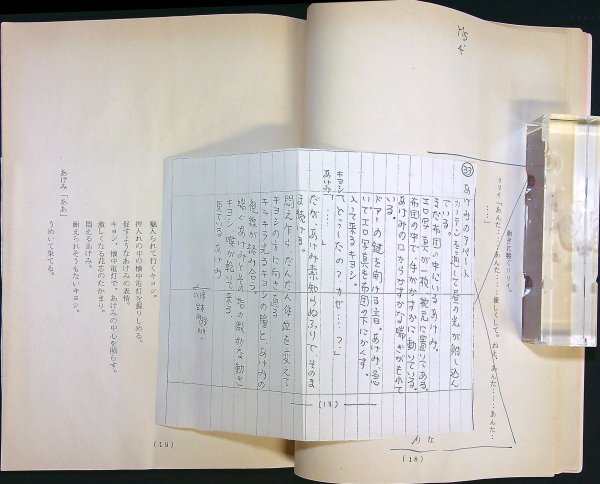 動きに喘ぐリリイ。
リリイ「あんた……あんた……優しくして。ねえ、あんた……あんた…
…」
(18)
㉝ あけみのアパート
カーテンを通して昼の光が射し込ん
でいる。
まだ布団の中にいるあけみ。
エロ写真が一枚、枕元に置いてある。
布団の中で、手がかすかに動いている。
あけみの口からかすかな喘ぎがもれて
いる。
ドアーの鍵を開ける音。あけみ、急
いでエロ写真を布団の下にかくす。
入って来るキヨシ。
キヨシ「どうしたの?カゼ…?」
あけみ「……」
だが、あけみ素知らぬふりで、そのま
ま続ける。
悶え作ら、だんだん体位を変えて
キヨシの方に向き直る
キラキラ光るキヨシの瞳と、あけみの
視線が絡み合う。
喘ぐあけみとその指の微かな動き
キヨシ、喉が乾いて来る。
見ている あけみ
—(18)—
魅入られて行くキヨシ。
押入れの中の懐中電灯を握りしめる。
促すようなあけみの表情。
キヨシ、懐中電灯で、あけみの中心を照らす。
激しくなる花芯のたかまり。
悶えるあけみ。
耐えられそうもないキヨシ。
あけみ「ああ」
うめいて果てる。
(19)